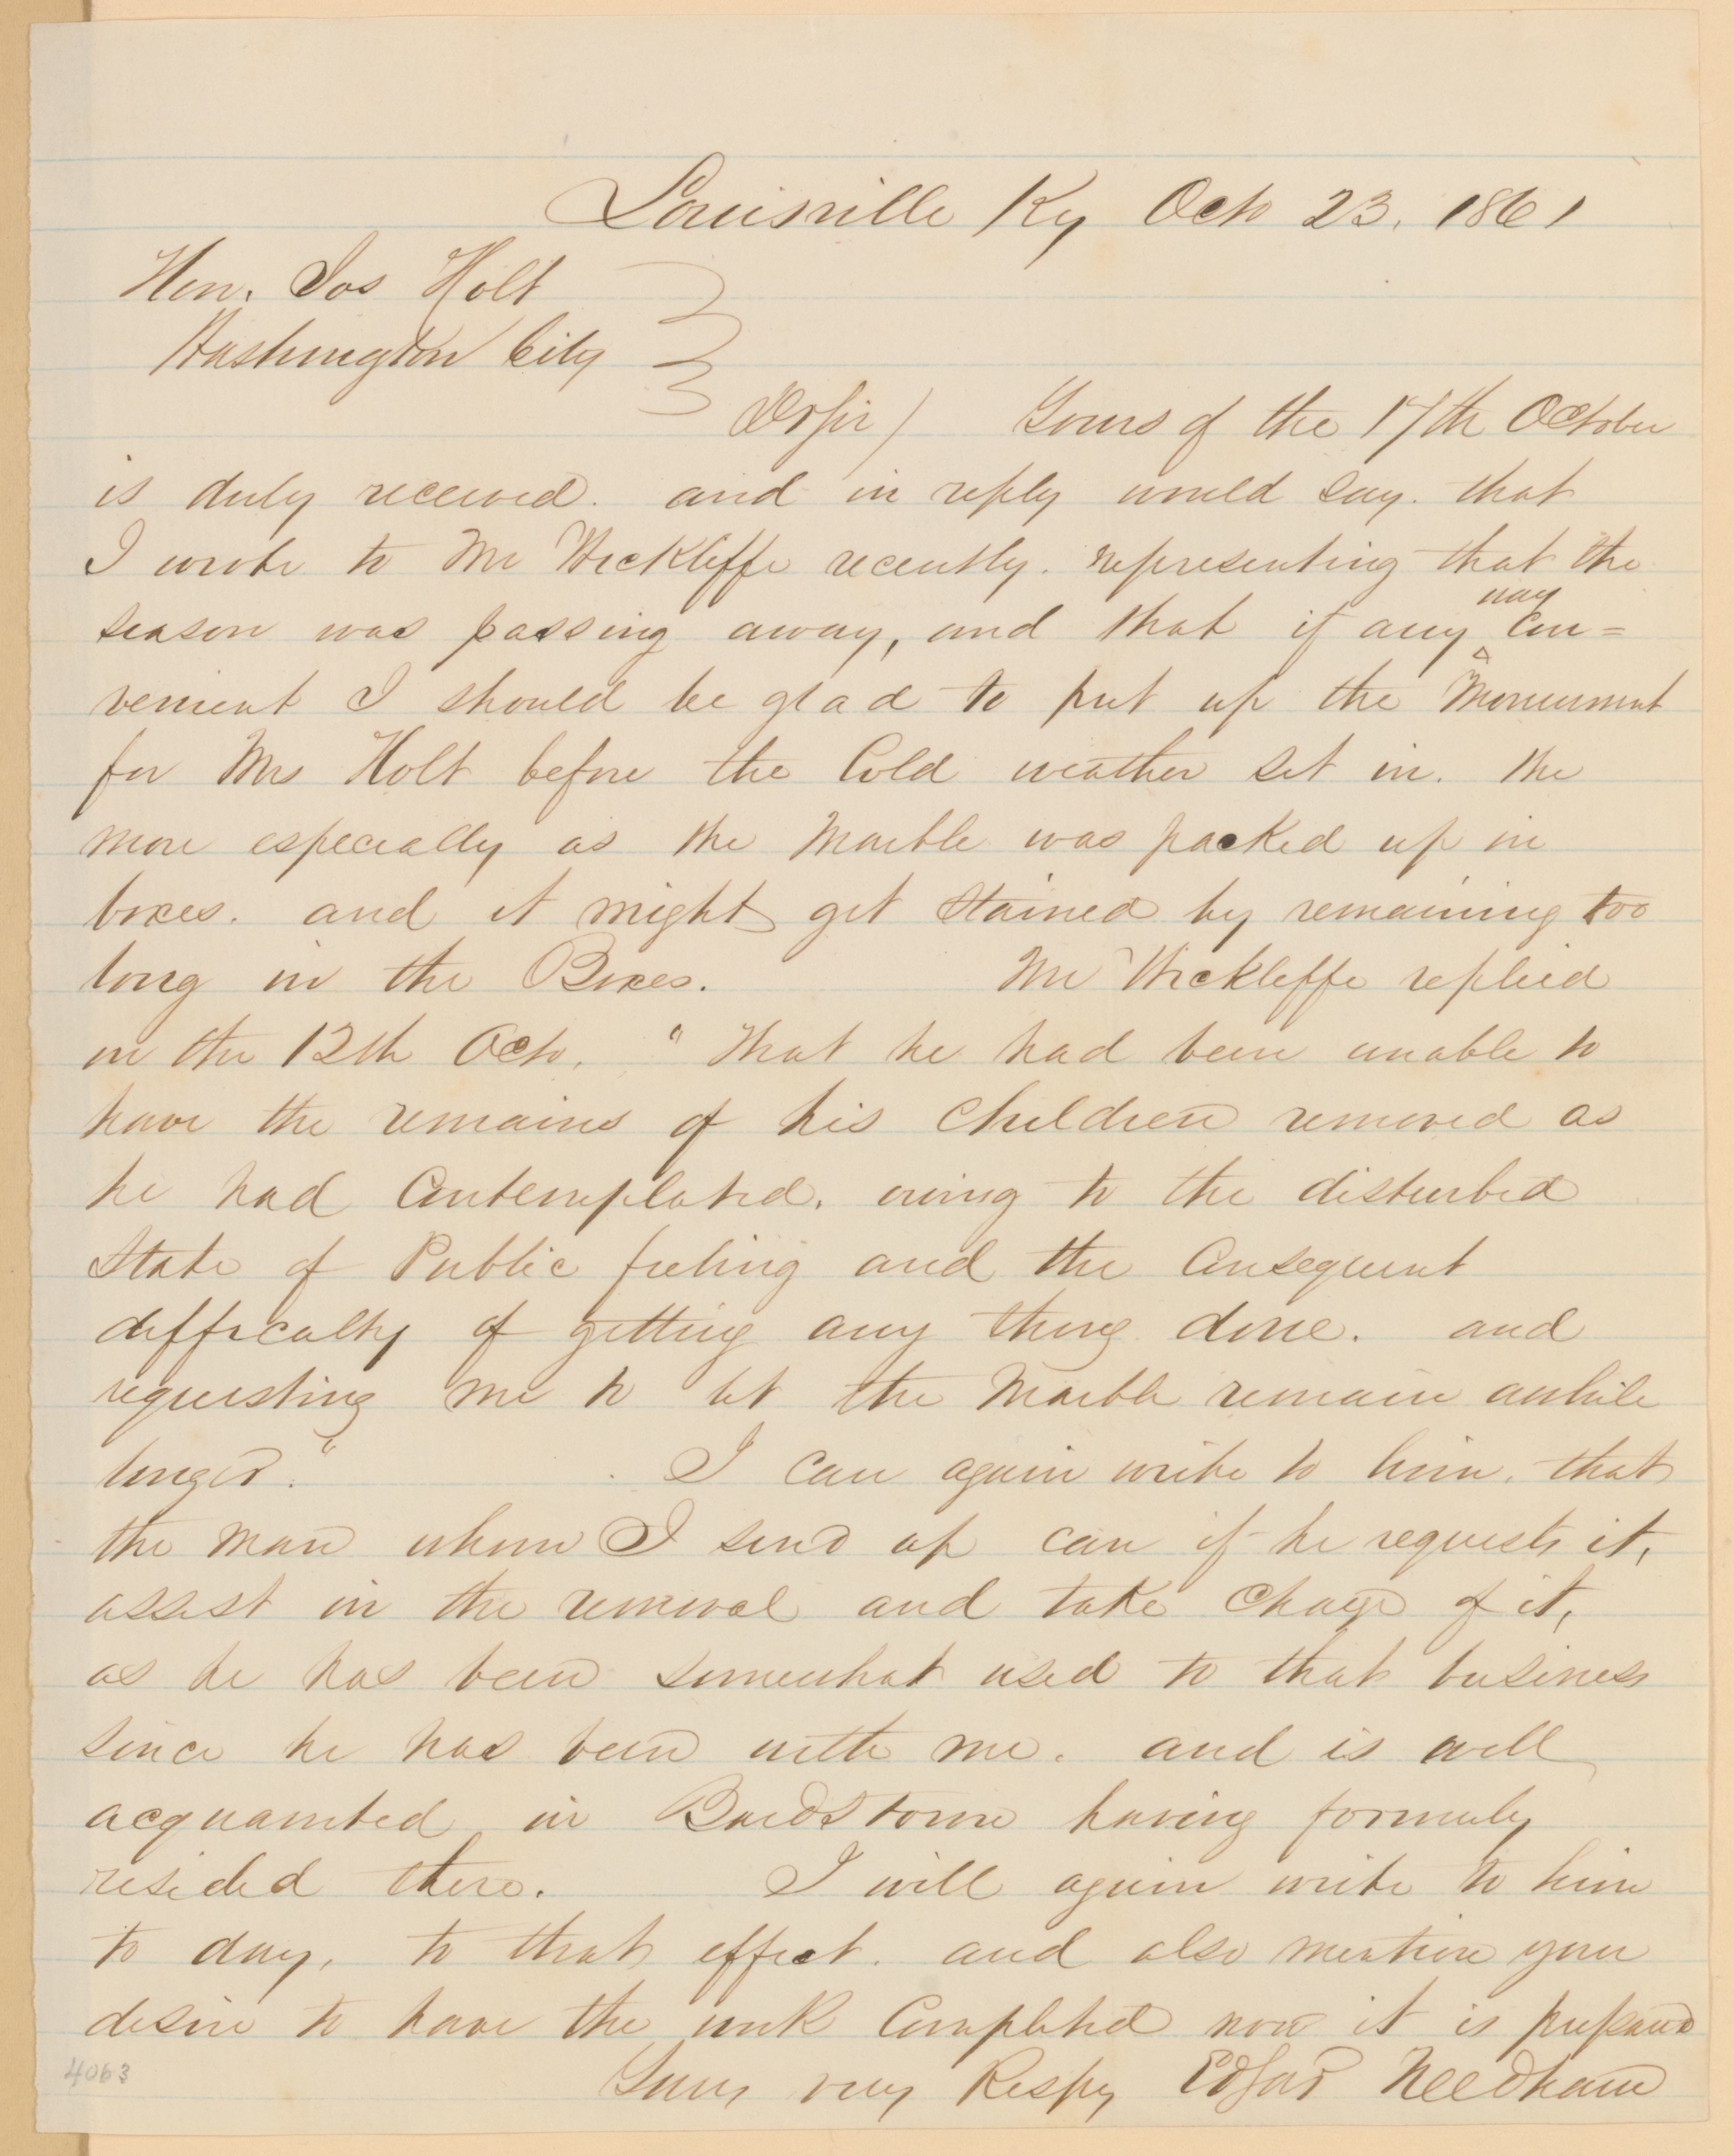 Louisville Ky Octo 23. 1861
Hon. Jos Holt
Washington City
Dr Sir / Yours of the 17th October
is duly received. and in reply would say. that
I wrote to Mr Wickliffe recently. representing that the
season was passing away, and that if any way con=
venient I should be glad to put up the Monument
for Mrs Holt before the Cold weather set in. the
more especially as the Marble was packed up in
boxes. and it might get stained by remaining too
long in the Boxes. Mr Wickliffe replied
on the 12th Octo. "That he had been unable to
have the remains of his Children removed as
he had Contemplated. owing to the disturbed
State of Public feeling and the Consequent
difficulty of getting any thing done. and
requesting me to let the Marble remain awhile
longer." I can again write to him. that
the man whom I send up can if he requests it,
assist in the removal and take Charge of it,
as he has been somewhat used to that business
since he has been with me. and is well
acquainted in Bardstown having formerly
resided there. I will again write to him
to day, to that effect. and also mention your
desire to have the work Completed now it is prepared
Yours very Respy Edgar Needham
4063